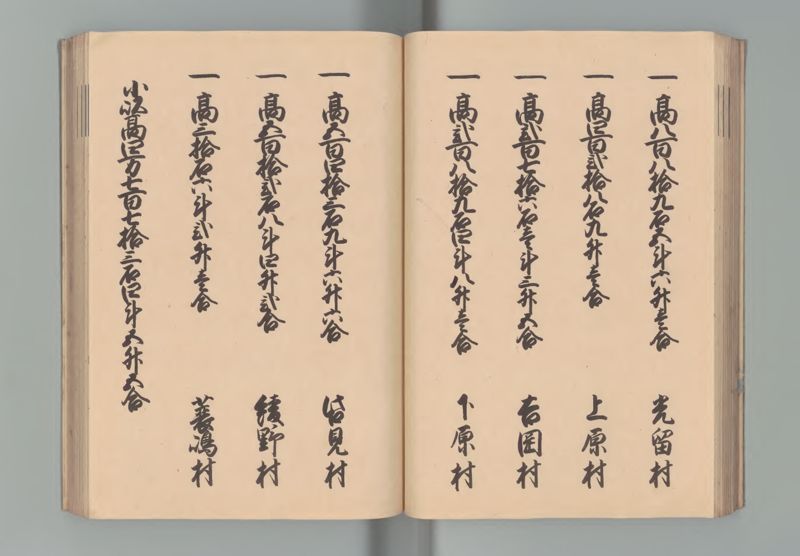 一 高八百八拾九石五斗六升壱合 光留村
一 高四百弐拾八石九升壱合 上原村
一 高弐百七拾六石壱斗三升五合 吉岡村
一 高弐百八拾九石四斗八升壱合 下原村
一 高五百四拾三石九斗六升六合 皆見村
一 高五百拾弐石八斗四升弐合 綾野村
一 高三拾石六斗弐升壱合 蓑嶋村
小以高四万七百七拾三石四斗五升五合